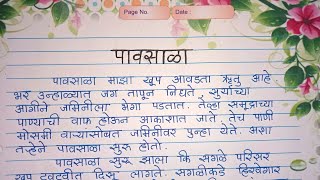 Page No.
Date :
पावसाळा
पावसाळा माझा खूप आवडता ऋतु आहे.
भर उन्हाळ्यात जग तापून निघते, सूर्याच्या
आगीने जमिनीला भेगा पडतात. तेव्हा समुद्राच्या
पाण्याची वाफ होऊन आकाशात जाते. तेच पाणी
मोसमी वाऱ्यांसोबत जमिनीवर पुन्हा येते. अशा
तऱ्हेने पावसाळा सुरु होतो.
पावसाळा सुरु झाला कि सगळे परिसर
खूप टवटवीत दिसू लागते. सगळीकडे हिरवेगार